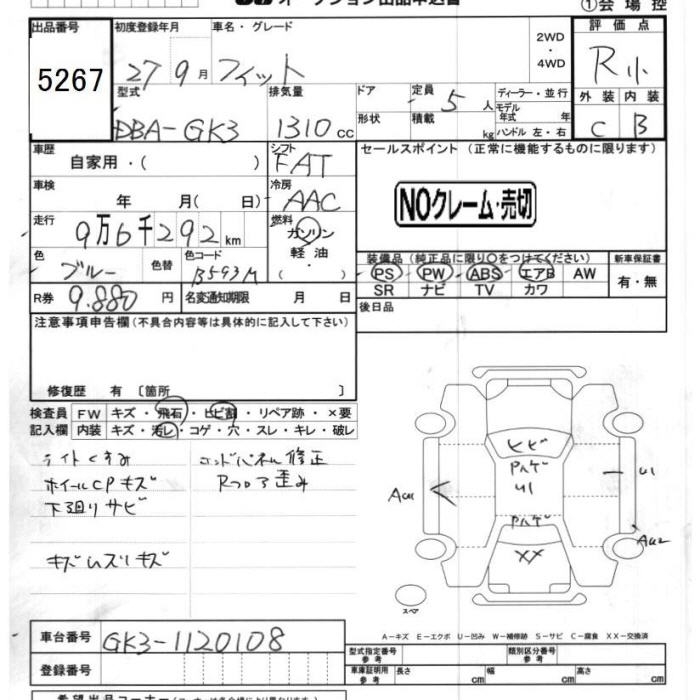 オークション出品申込書
①会場控
出品番号
5267
初度登録年月 車名・グレード
27 9月 フィット
2WD
・
4WD
評価点
R小
外装 内装
C B
型式 排気量
DBA-GK3 1310cc
ドア 定員 5人
形状 積載 kg
ディーラー・並行
モデル年式 年
ハンドル 左・右
車歴 自家用・( )
シフト FAT
セールスポイント(正常に機能するものに限ります)
NOクレーム・売切
車検 年 月( 日)
冷房 AAC
走行 9万6千292km
燃料 ガソリン
軽油
・( )
色 ブルー 色替 色コード B593M
装備品(純正品に限り○をつけてください)
PS PW ABS エアB AW
SR ナビ TV カワ
新車保証書
有・無
R券 9.880円 名変通知期限 月 日
後日品
注意事項申告欄(不具合内容等は具体的に記入して下さい)
修復歴 有〔箇所 〕
検査員 FW キズ・飛石・ヒビ割・リペア跡・×要
記入欄 内装 キズ・汚レ・コゲ・穴・スレ・キレ・破レ
ライトくすみ
ホイールCPキズ
下廻りサビ
キズムズリキズ
エンドパネル修正
Rフロア歪み
ヒビ
Pハゲ
U1
Pハゲ
XX
AU1
U1
AU2
スペア
A-キズ E-エクボ U-凹み W-補修跡 S-サビ C-腐食 XX-交換済
車台番号 GK3-1120108
登録番号
型式指定番号 参考 類別区分番号 参考
車庫証明用 参考 長さ cm 幅 cm 高さ cm
希望出品コーナー